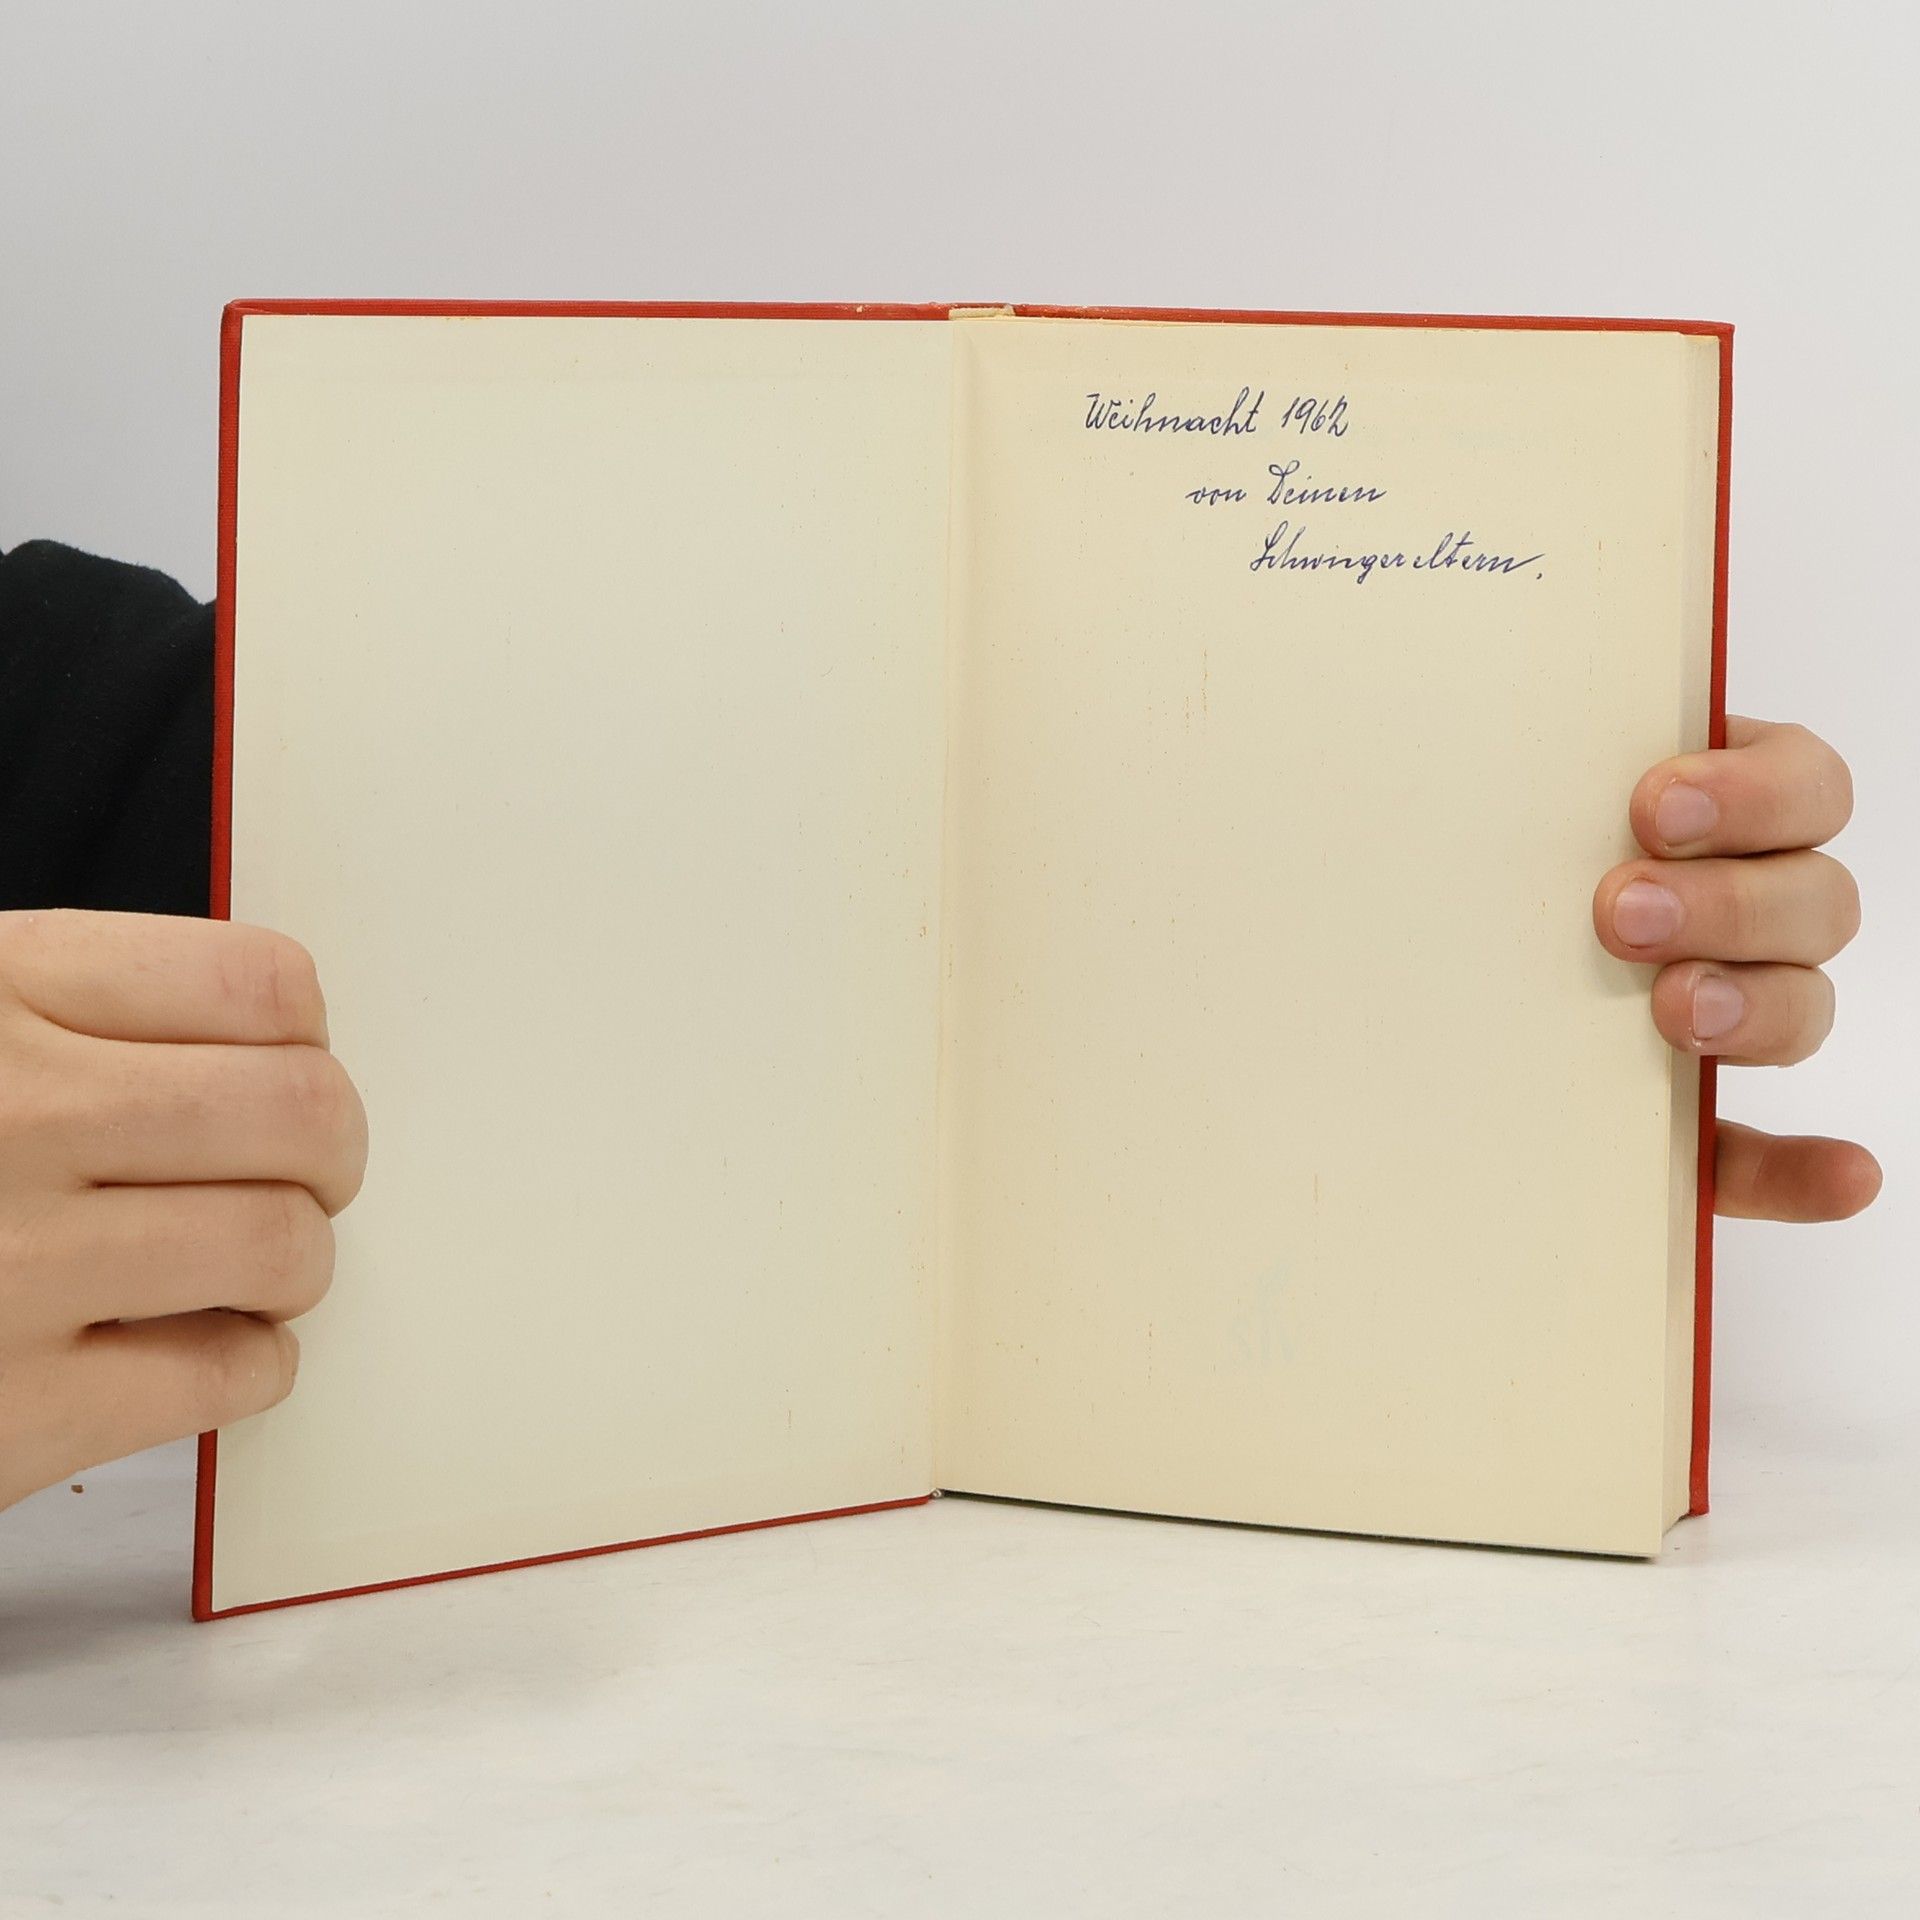 Weihnacht 1962
von Deinen
Schwingereltern.